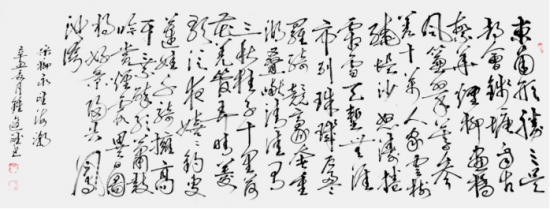 東南形勝三吳
都會錢塘自古
繁華煙柳畫橋
風簾翠幕參
差十萬人家雲樹
繞堤沙怒濤捲
霜雪天塹無涯
市列珠璣戶盈
羅綺競豪奢重
湖疊巘清嘉有
三秋桂子十里荷
花羌管弄晴菱
歌泛夜嬉嬉釣叟
蓮娃千騎擁高
牙乘醉聽簫鼓
吟賞煙霞異日圖
將好景歸去鳳
池誇
宋柳永望海潮
辛丑五月